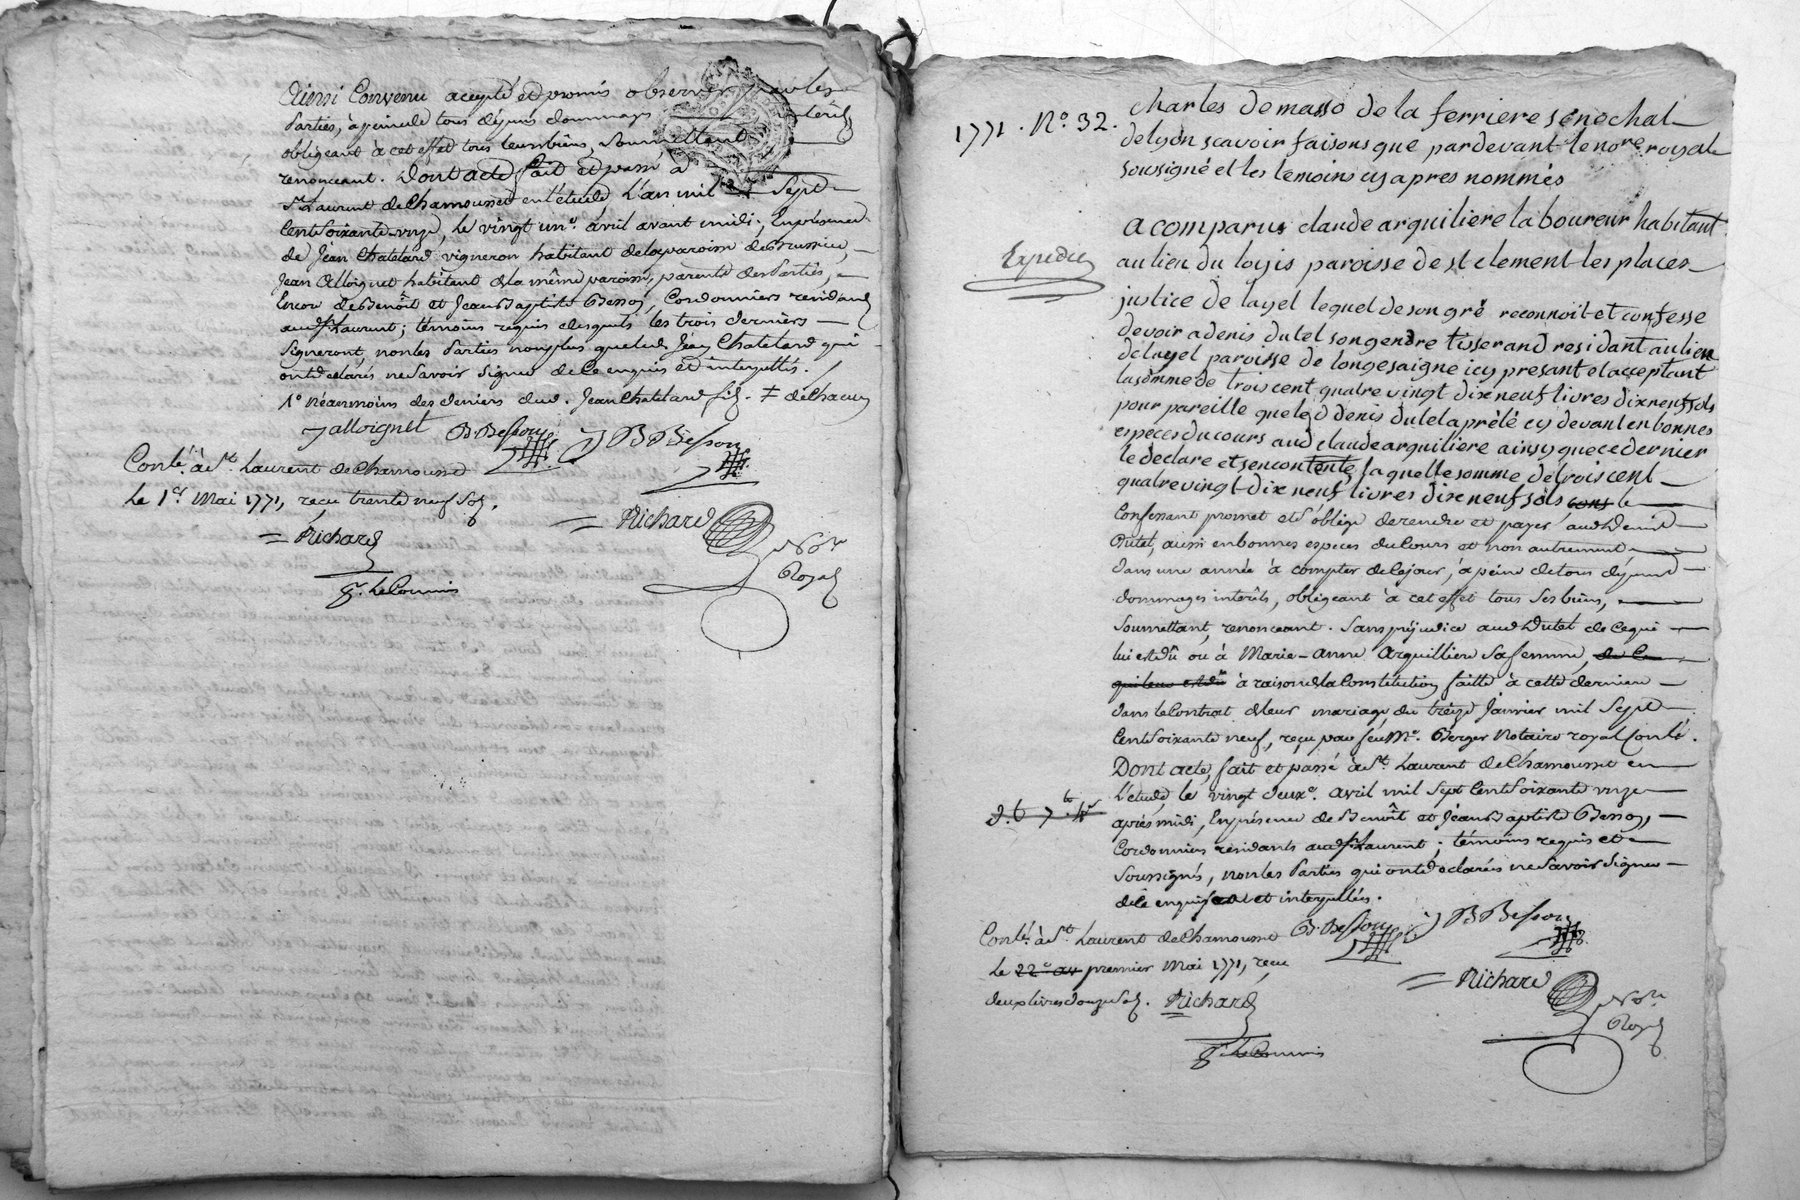 Ainsi Convenu accepté et promis observer par les
Parties, à peine de tous dépens dommages intérêts
obligeant à cet effet tous leurs biens, Soumettant
renonceant. Dont acte fait et passé à
St. Laurent de Chamousset en l'étude, L'an mil Sept
Cent Soixante onze, le vingt un.e avril avant midi, En présence
de Jean Chatelard vigneron habitant de la paroisse de Brussieu,
Jean Alloignet habitant de la même paroisse, parents des Parties,
Encor de Benoît et Jean Baptiste Besson, Cordonniers residants
aud. St Laurent; témoins requis desquels les trois derniers
Signeront, non les Parties non plus que led. Jean Chatelard qui
ont déclarés ne Savoir Signer de Ce enquis et interpellés.
1° Néanmoins des deniers dud. Jean Chatelard fils. ≠ de Chacun
J alloignet B. Besson J B Besson
Conlé. à St. Laurent de Chamousset
le 1er Mai 1771, reçu trente neuf Sols.
Richard
Richard
No.re
Royal
pr. le Commis
1771. N° 32.
Charles de masso de la ferriere sénéchal
de lyon scavoir faisons que pardevant le nore royal
sousigné et les temoins cy apres nommés
a comparus claude arquiliere laboureur habitant
Expédié
au lieu du logis paroisse de st clement les places
justice de layel lequel de son gré reconnoit et confesse
devoir a denis dutel son gendre tisserand residant au lieu
de layel paroisse de longesaigne icy presant et acceptant
la somme de trois cent quatre vingt dix neuf livres dix neuf sols
pour pareille que led denis dutel a prêlé cy devant en bonnes
espèces du cours aud claude arquiliere ainsy que ce dernier
le declare et sen contente, laquelle somme de trois cent
quatre vingt dix neuf livres dix neuf sols cons le
Confessant promet et S'oblige de rendre et payer aud. Denis
Dutel, aussi en bonnes especes du Cours et non autrement
dans une année à compter de Ce jour, à peine de tous dépens
dommages intérêts, obligeant à cet effet tous Ses biens,
Soumettant, renonceant. Sans préjudice aud. Dutel de Ce qui
lui est dû ou à Marie-Anne Arquilliere Sa femme, de Ce
qui leur est dû à raison de la Constitution faitte à cette derniere
dans le Contrat de leur mariage du treize Janvier mil Sept
Cent Soixante neuf, reçu par feu Me. Berger Notaire royal Conlé.
Dont acte, fait et passé à St. Laurent de Chamousset en
L'étude, le vingt deuxe. avril mil Sept Cent Soixante onze
après midi, En présence de Benoît et Jean Baptiste Besson,
Cordonniers residants aud. St Laurent; témoins requis et
Soussignés, non les Parties qui ont déclarés ne Savoir Signer
de Ce enquis et interpellées.
Conlé. à St. Laurent de Chamousset
B. Besson J B Besson
le 22e av premier Mai 1771, reçu
deux livres douze Sols. Richard
Richard
No.re
Royal
pr le Commis